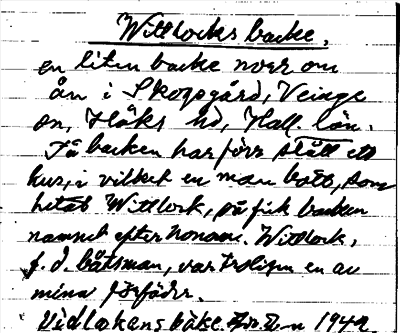 Wittlocks backe.
en liten backe norr om
ån i Skogsgård, Veinge
sn, Höks hd, Hall. län.
På backen har förr stått ett
hus, i vilket en man bott, som
hetat Wittlock, så fick backen
namnet efter honom. Wittlock,
f. d. båtsman, var troligen en av
mina förfäder.
1942